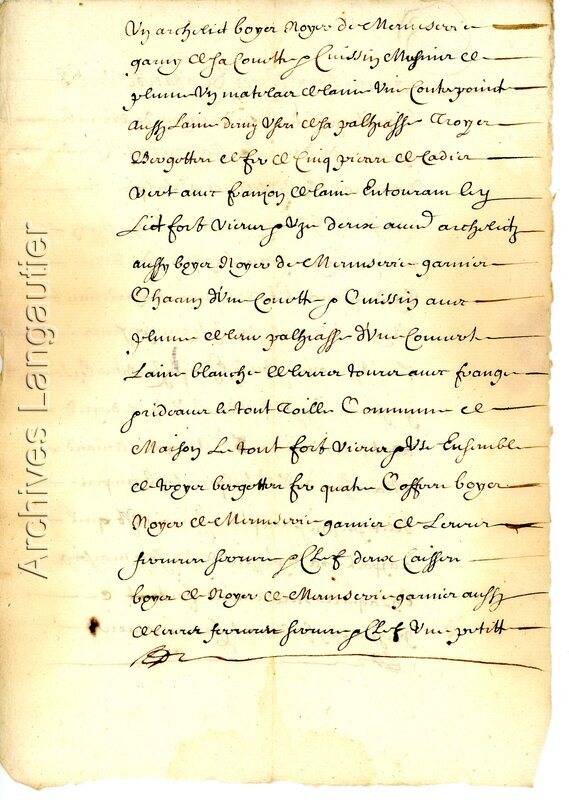 Un archelict boyer Noyer de Menuserie
garny de sa Couette & Cuissin Musnier de
plume Un matelacz de laine Une Contrepointe
aussy Laine demy Uzé de sa palhiasse Troyer
Bergotten de fer de Cinq pierre de Cadier
Vert avec franjon de laine Entouram ley
Lict fort Vieux & Uze deux aued archelictz
aussy boyer Noyer de Menuserie garnier
Chacun d'Une Couette & Cuissin avec
plume de leur palhiasse d'Une Couverte
Laine blanche de leurer tourer avec frange
prideaux le tout Toille Commune de
Maison Le tout fort Vieux & Uze Ensemble
de troyer bergotten fer quatre Coffren boyer
Noyer de Menuserie garnier de Leurer
ferrurer serrure & Clef deux Caissen
boyer de Noyer de Menuserie garnier aussy
de leurer ferrurer serrure & Clef Une petitte
Archives Langautier